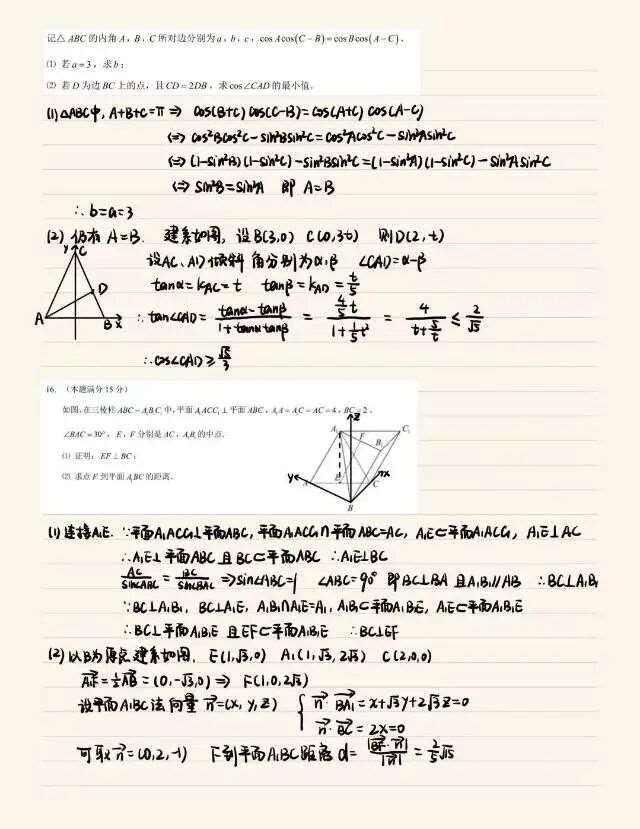 记△ABC的内角A，B，C所对边分别为a，b，c，cosAcos(C−B)=cosBcos(A−C)．
(1) 若a=3，求b；
(2) 若D为边BC上的点，且CD=2DB，求cos∠CAD的最小值．
(1) △ABC中，A+B+C=π ⇒ cos(B+C)cos(C-B)=cos(A+C)cos(A-C)
⇔ cos²Bcos²C-sin²Bsin²C=cos²Acos²C-sin²Asin²C
⇔ (1-sin²B)(1-sin²C)-sin²Bsin²C=(1-sin²A)(1-sin²C)-sin²Asin²C
⇔ sin²B=sin²A 即 A=B
∴ b=a=3
(2) 仍有 A=B. 建系如图，设B(3,0) C(0,3t) 则D(2,t)
设AC、AD倾斜角分别为α,β ∠CAD=α-β
tanα=k_AC=t tanβ=k_AD=t/5
∴ tan∠CAD=(tanα-tanβ)/(1+tanαtanβ)=(4/5 t)/(1+1/5 t²)=4/(t+5/t)≤2/√5
∴ cos∠CAD≥√5/3
y C D A B x
16. （本题满分15分）
如图，在三棱柱ABC−A₁B₁C₁中，平面A₁ACC₁⊥平面ABC，A₁A=A₁C=AC=4，BC=2，
∠BAC=30°，E，F分别是AC，A₁B₁的中点．
(1) 证明：EF⊥BC；
(2) 求点F到平面A₁BC的距离．
z A₁ F B₁ C₁ y A E C x B
(1) 连接A₁E. ∵平面A₁ACC₁⊥平面ABC，平面A₁ACC₁∩平面ABC=AC，A₁E⊂平面A₁ACC₁，A₁E⊥AC
∴A₁E⊥平面ABC 且 BC⊂平面ABC ∴A₁E⊥BC
AC/sin∠ABC=BC/sin∠BAC ⇒ sin∠ABC=1 ∠ABC=90° 即BC⊥BA 且A₁B₁∥AB ∴BC⊥A₁B₁
∵BC⊥A₁B₁，BC⊥A₁E，A₁B₁∩A₁E=A₁，A₁B₁⊂平面A₁B₁E，A₁E⊂平面A₁B₁E
∴BC⊥平面A₁B₁E 且EF⊂平面A₁B₁E ∴BC⊥EF
(2) 以B为原点建系如图. E(1,√3,0) A₁(1,√3,2√3) C(2,0,0)
A₁F=½AB=(0,-√3,0) ⇒ F(1,0,2√3)
设平面A₁BC法向量 n=(x,y,z) { n·BA₁=x+√3y+2√3z=0
n·BC=2x=0
可取n=(0,2,-1) F到平面A₁BC距离 d=|BF·n|/|n|=2/5√15